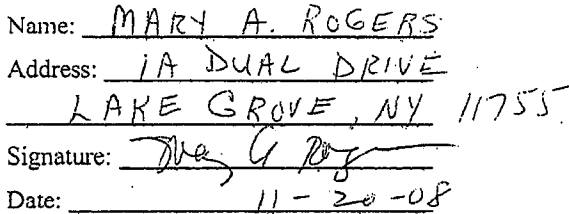 Name: MARY A. ROGERS
Address: 1A DUAL DRIVE
LAKE GROVE, NY 11755
Signature: Mary A Rogers
Date: 11-20-08